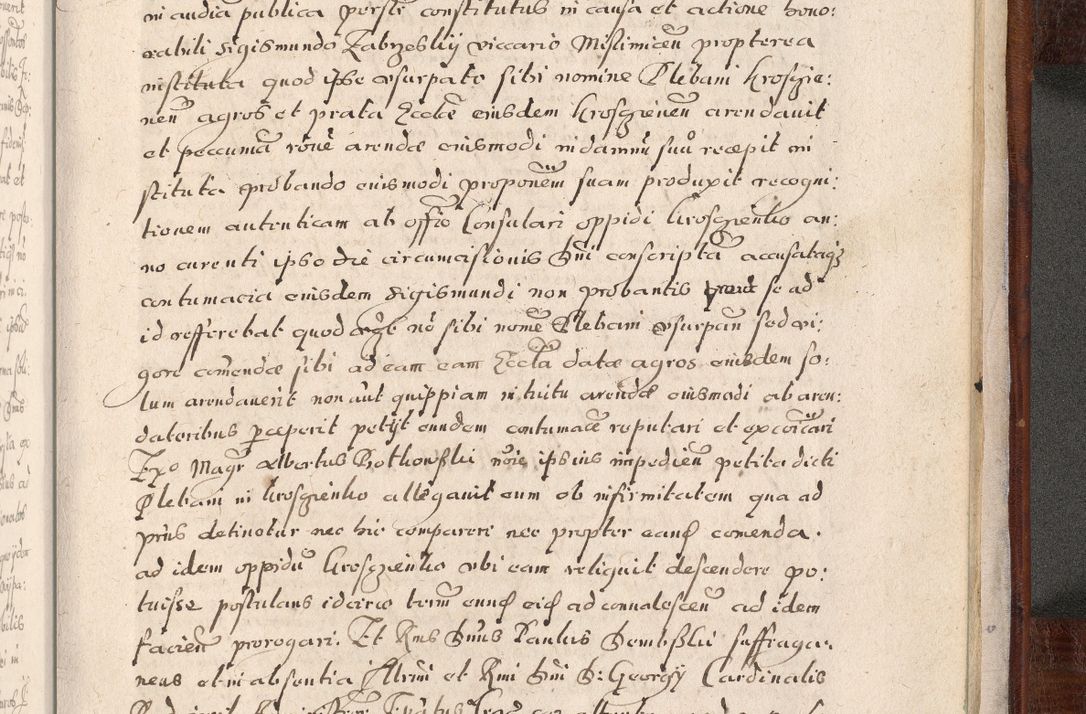 in audia publica personaliter constitutus in causa et actione hono:
rabili Sigismundo Zabrzeskij viccario Mislimicen propterea
instituta quod ipse usurpato sibi nomine Plebani Krosczie:
nen agros et prata Eccłæ eiusdem Kroscienen arendavit
et peccuniā roně arendæ eiusmodi in damnū suū recepit in
stituta probando eiusmodi proponem̃ suam produxit recogni:
tionem autenticam ab offiō Consulari oppidi Krosczienko an:
no currenti ipso die circumcisionis Dni conscriptā accusatqz
contumacia eiusdem Sigismundi non probantis prout se ad
id refferebat quod nō sibi nomē Plebani usurpan sed vi:
gore comendæ sibi ad eam eam Eccłā datæ agros eiusdem so:
lum arendaverit non aut quippiam intuitu arendæ eiusmodi ab aren:
datoribus perceperit petijt eundem contumacē reputari et excoīcari
Exo Magr Albertus Bothowski noīe ipsius impedien petita dicti
Plebani in Krosczienko allegavit eum ob infirmitatem qua ad
prñs detinetur nec hic comparere nec propter eand comenda.
ad idem oppidū Krosczienko ubi eam reliquit descendere po:
tuisse postulans idcirco termū eund eid ad convalescen ad idem
facien prorogari. Et Rmus Dnus Paulus Dembski suffraga:
neus et in absentia Illrmi et Rmi Dni D: Georgij Cardinalis